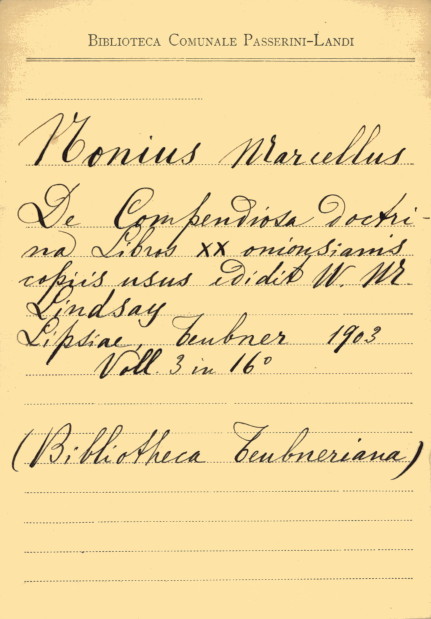 BIBLIOTECA COMUNALE PASSERINI-LANDI
Nonius Marcellus
De Compendiosa doctri-
na Libros XX onionsianis
copiis usus edidit W. M
Lindsay
Lipsiae, Teubner 1903
Voll. 3 in 16°
(Bibliotheca Teubneriana)